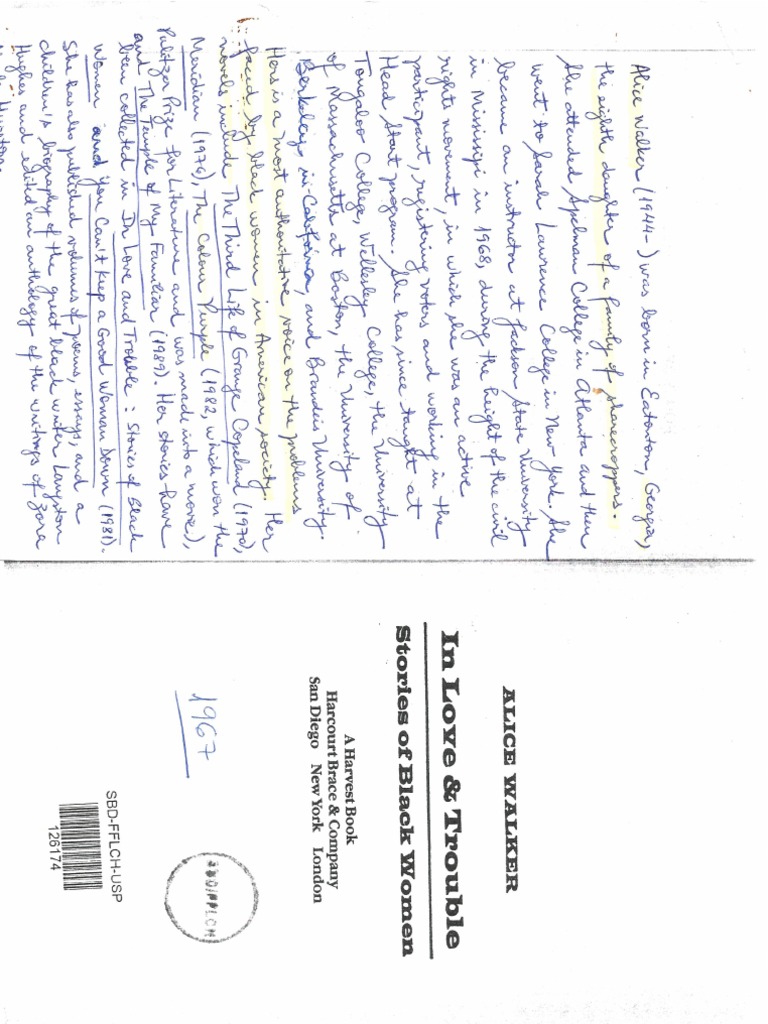 Alice Walker (1944- ) was born in Eatonton, Georgia,
the eighth daughter of a family of sharecroppers.
She attended Spelman College in Atlanta and then
went to Sarah Lawrence College in New York. She
became an instructor at Jackson State University
in Mississipi in 1968, during the height of the civil
rights movement, in which she was an active
participant, registering voters and working in the
Head Start program. She has since taught at
Tougaloo College, Wellesley College, the University
of Massachusetts at Boston, the University of
Berkeley, in California, and Brandeis University.
Hers is a most authoritative voice on the problems
faced by black women in American society. Her
novels include The Third Life of Grange Copeland (1970),
Meridian (1976), The Colour Purple (1982, which won the
Pulitzer Prize for Literature and was made into a movie),
and The Temple of My Familiar (1989). Her stories have
been collected in In Love and Trouble: Stories of Black
Women and You Can't Keep a Good Woman Down (1981).
She has also published volumes of poems, essays, and a
children's biography of the great black writer Langston
Hughes and edited an anthology of the writings of Zora
ALICE WALKER
In Love & Trouble
Stories of Black Women
A Harvest Book
Harcourt Brace & Company
San Diego New York London
1967
SBD/FFLCH
SBD-FFLCH-USP
126174